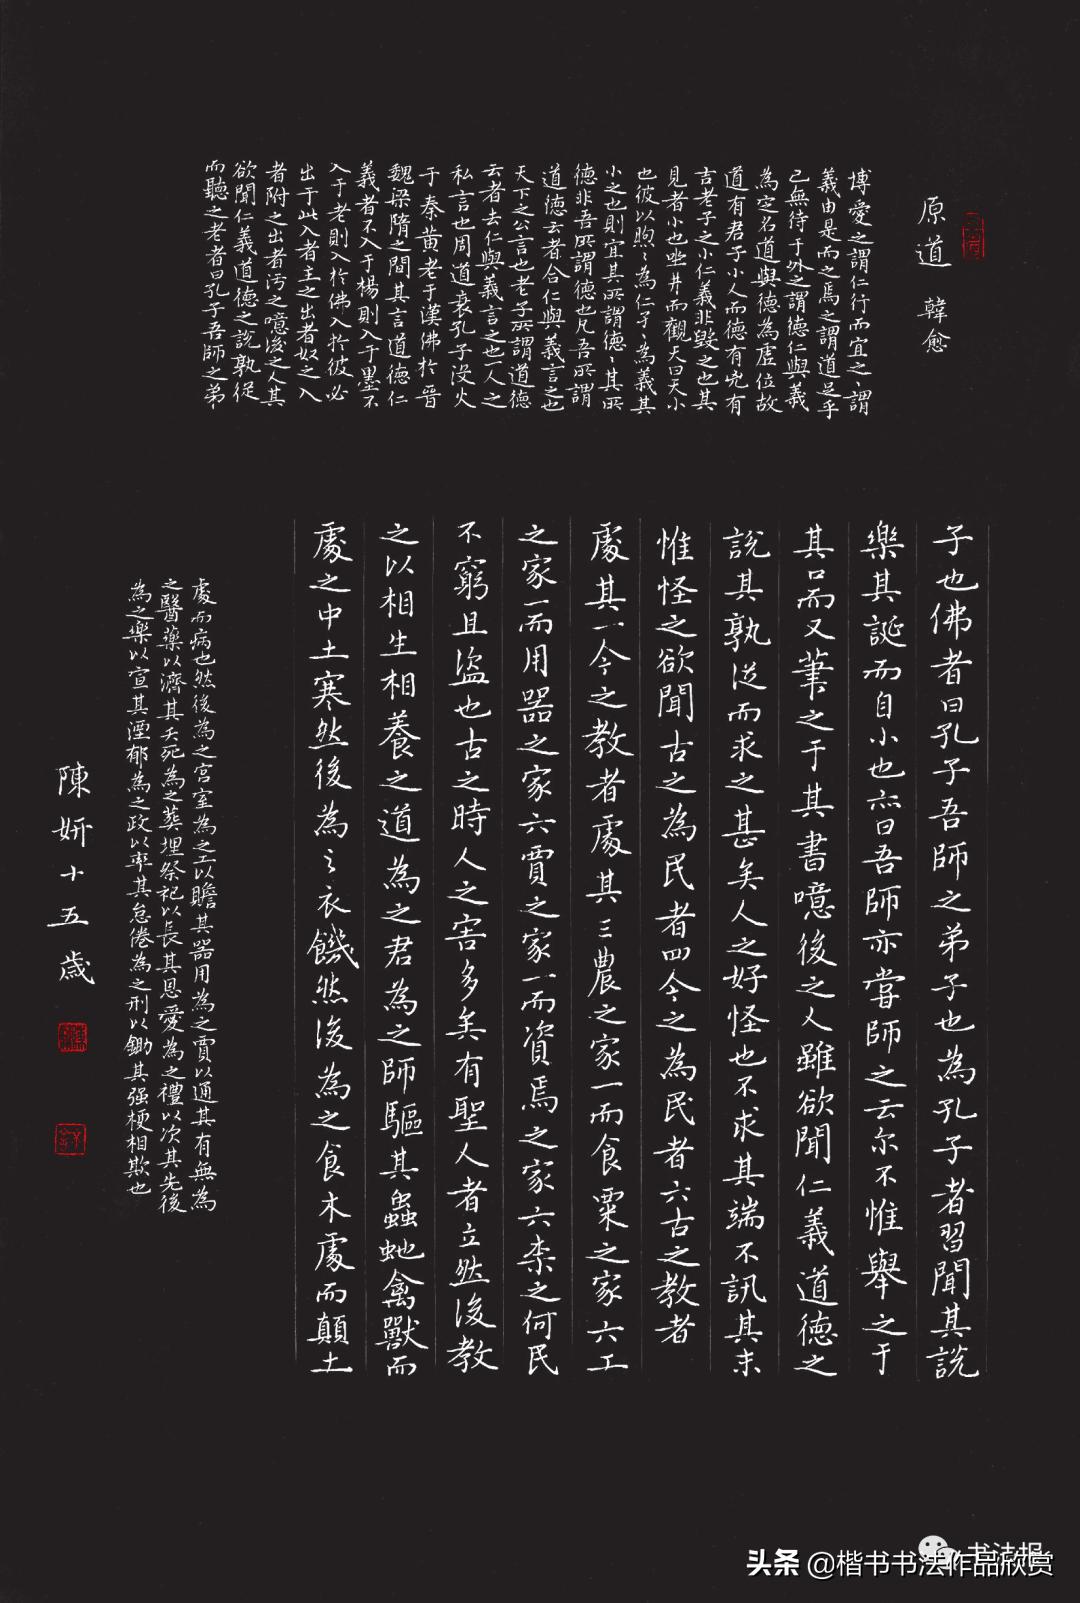 原道 韓愈
博愛之謂仁行而宜之之謂
義由是而之焉之謂道足乎
己無待于外之謂德仁與義
為定名道與德為虛位故
道有君子小人而德有兇有
吉老子之小仁義非毀之也其
見者小也坐井而觀天曰天小
也彼以煦〻為仁孑〻為義其
小之也則宜其所謂德〻其所
德非吾所謂德也凡吾所謂
道德云者合仁與義言之也
天下之公言也老子所謂道德
云者去仁與義言之也一人之
私言也周道衰孔子沒火
于秦黃老于漢佛於晉
魏梁隋之間其言道德仁
義者不入于楊則入于墨不
入于老則入於佛入於彼必
出于此入者主之出者奴之入
者附之出者汚之噫後之人其
欲聞仁義道德之說孰從
而聽之老者曰孔子吾師之弟
子也佛者曰孔子吾師之弟子也為孔子者習聞其說
樂其誕而自小也亦曰吾師亦嘗師之云尔不惟舉之于
其口而又筆之于其書噫後之人雖欲聞仁義道德之
說其孰從而求之甚矣人之好怪也不求其端不訊其末
惟怪之欲聞古之為民者四今之為民者六古之教者
處其一今之教者處其三農之家一而食粟之家六工
之家一而用器之家六賈之家一而資焉之家六柰之何民
不窮且盜也古之時人之害多矣有聖人者立然後教
之以相生相養之道為之君為之師驅其蟲虵禽獸而
處之中土寒然後為之衣饑然後為之食木處而顛土
處而病也然後為之宫室為之工以贍其器用為之賈以通其有無為
之醫藥以濟其夭死為之葬埋祭祀以長其恩愛為之禮以次其先後
為之樂以宣其湮郁為之政以率其怠倦為之刑以鋤其强梗相欺也
陳妍十五歲
书法报
头条 @楷书书法作品欣赏